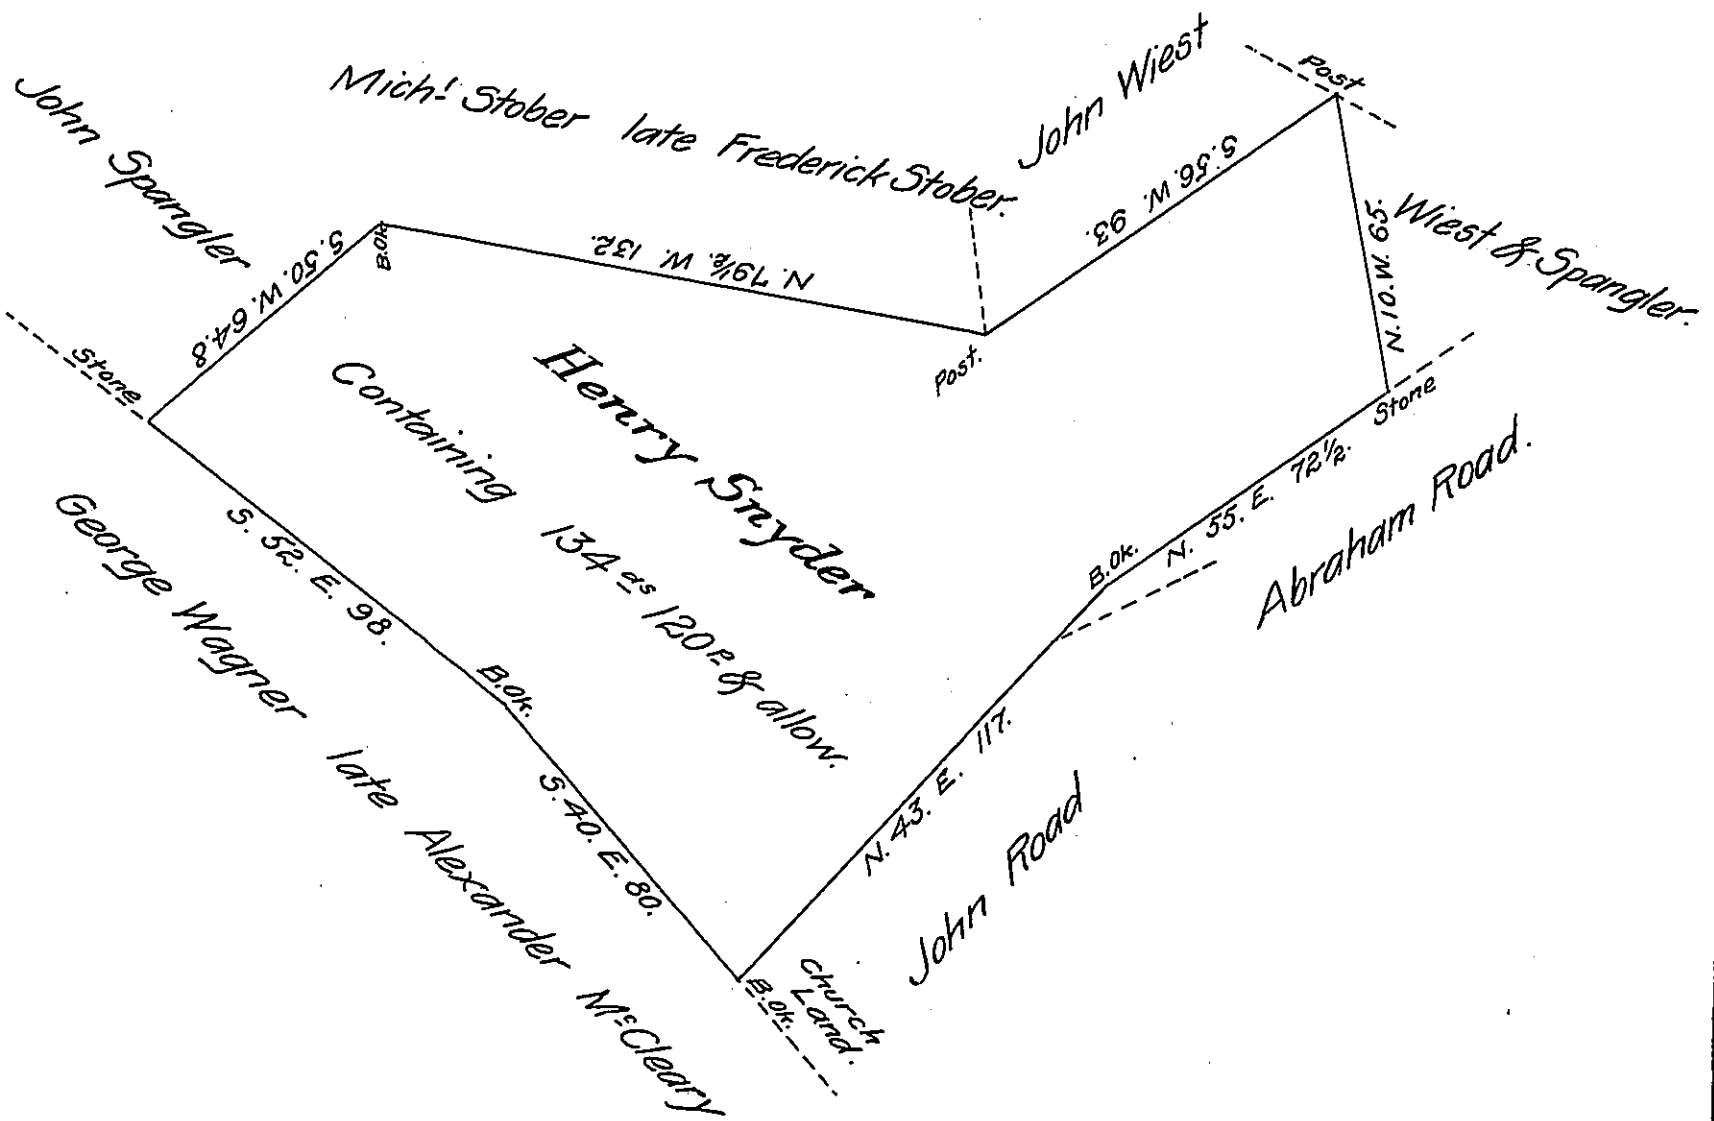 John Spangler
Mich! Stober late Frederick Stober.
John Wiest
Post
S. 56. W. 93.
Wiest & Spangler.
N. 10. W. 65.
S. 50. W. 64.8
B.Ok
N. 79½. W. 132.
Post.
Stone
Stone
Henry Snyder
Containing 134 as 120 P. & allow.
N. 55. E. 72½.
Abraham Road.
B.Ok.
George Wagner late Alexander McCleary
S. 52. E. 98.
B.Ok.
S. 40. E. 80.
N. 43. E. 117.
John Road
B.Ok.
Church
Land.